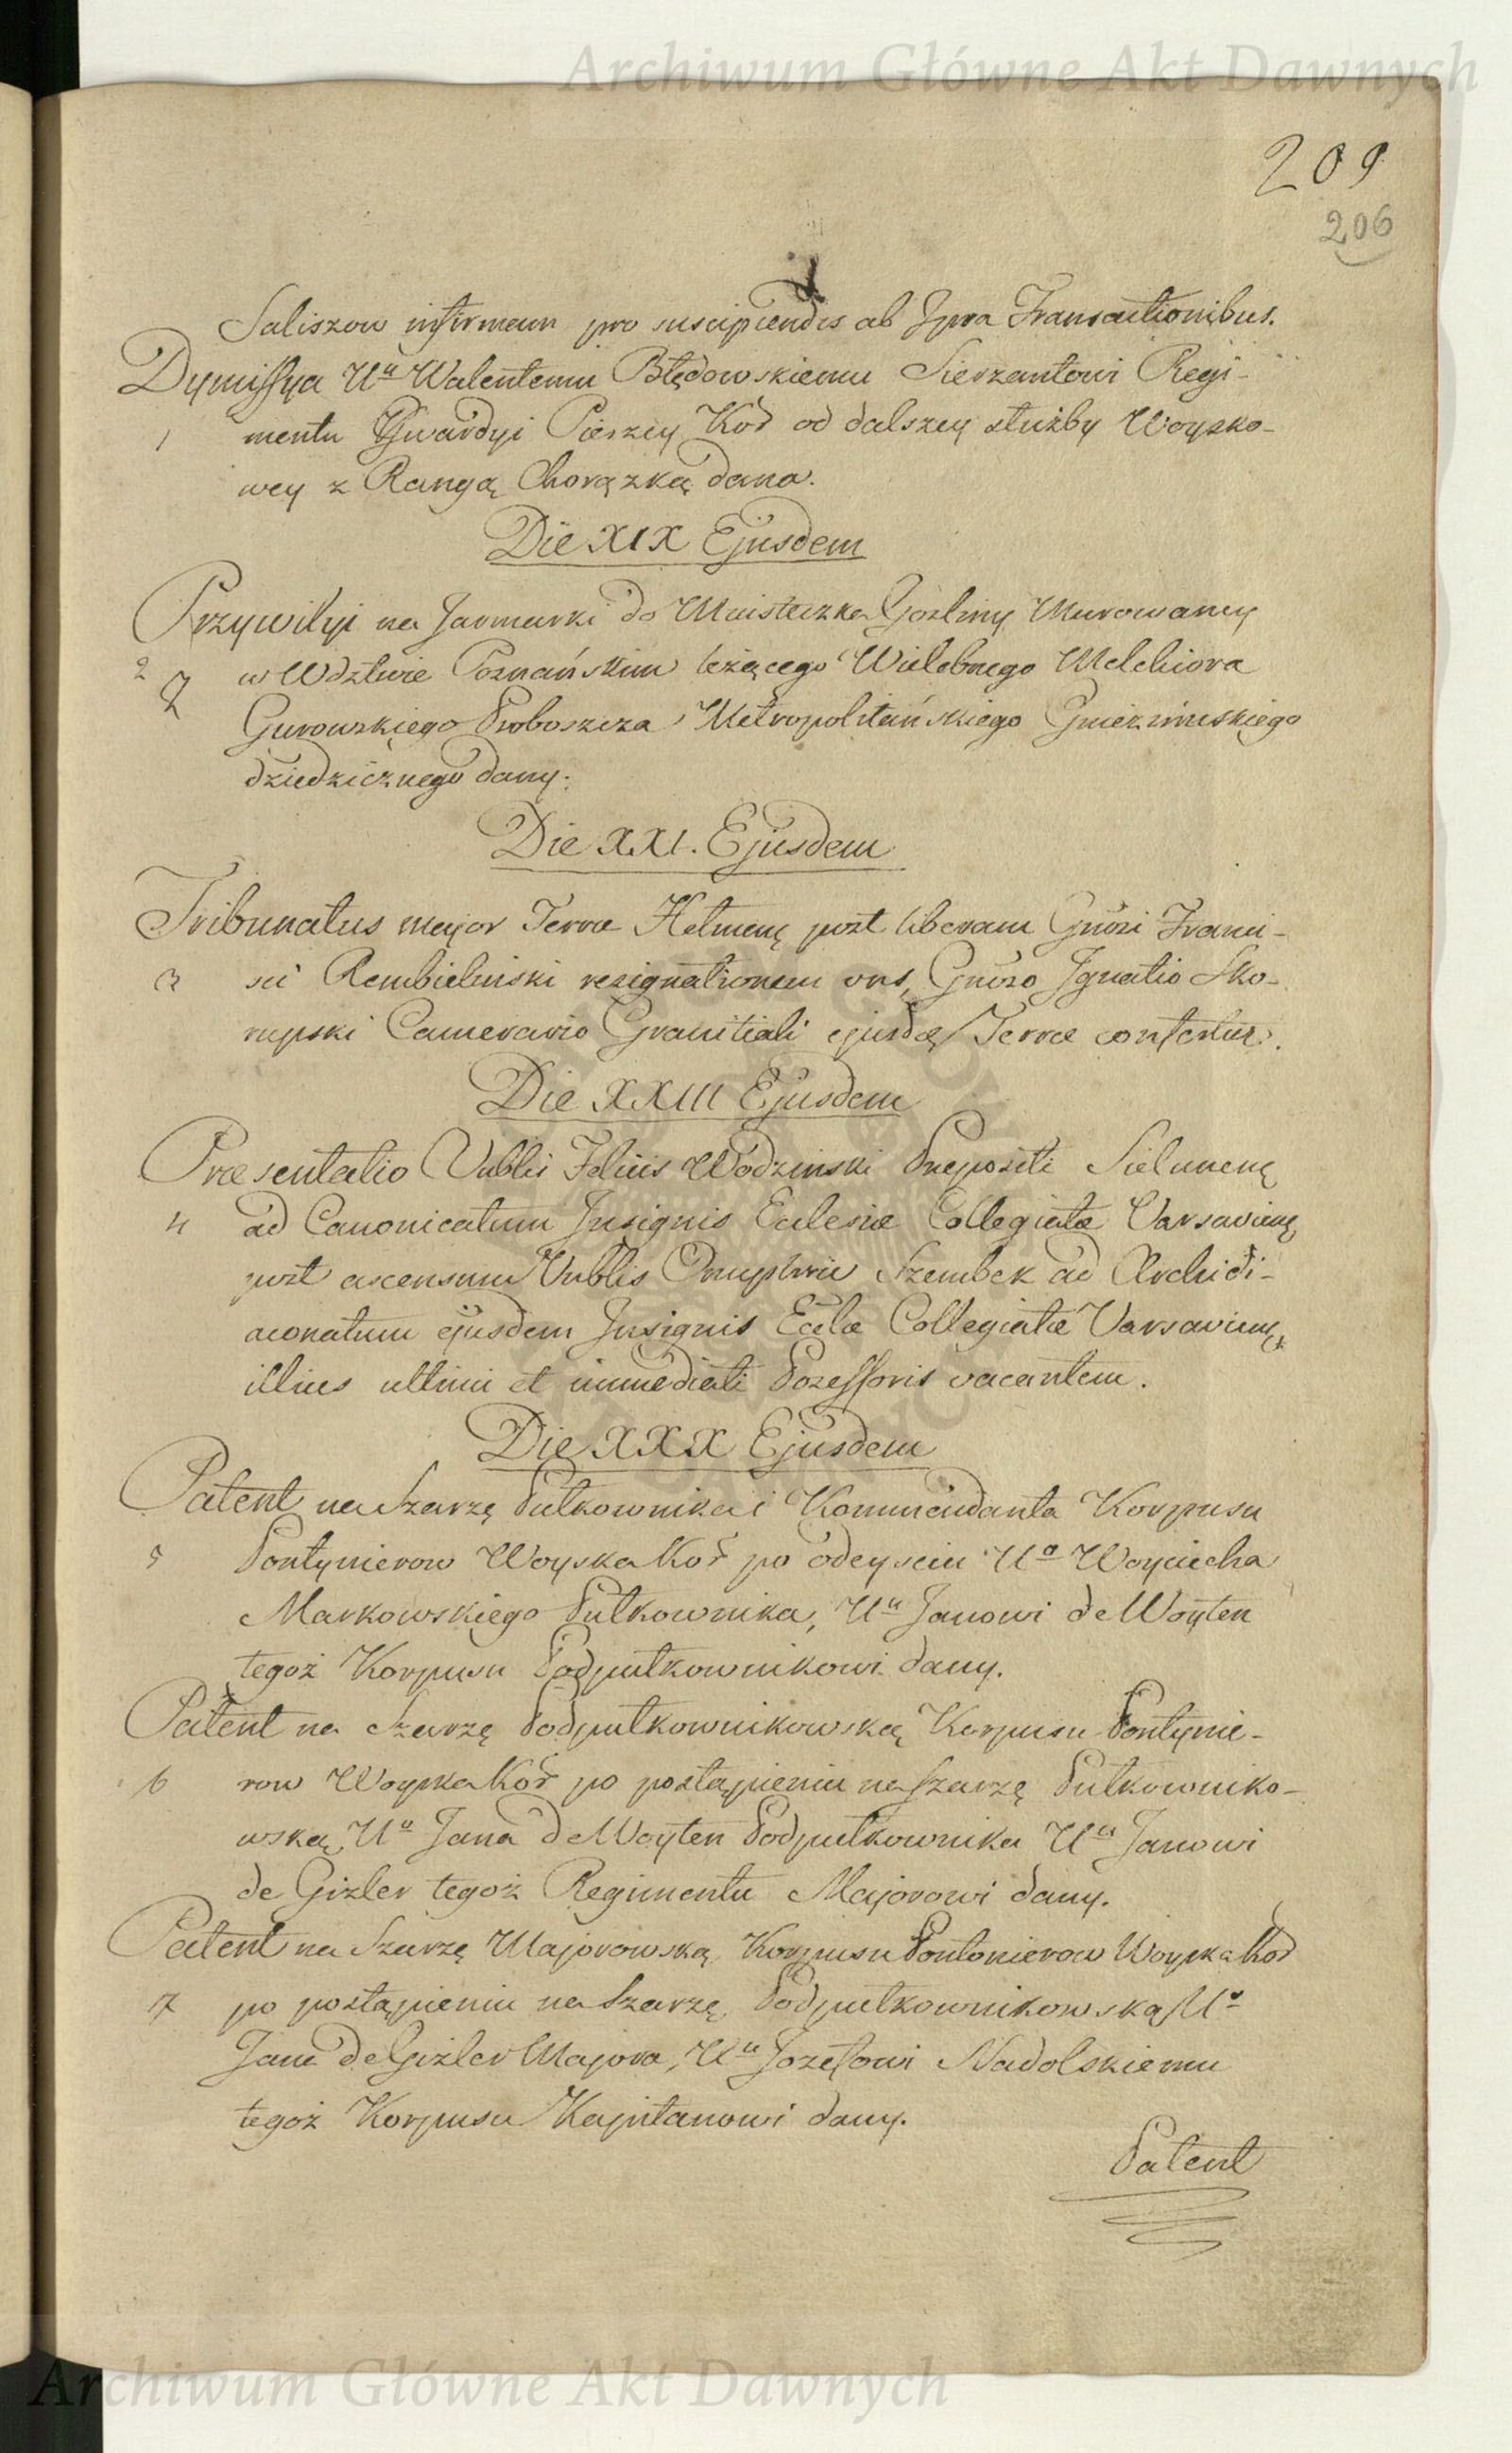 Archiwum Główne Akt Dawnych
209
206
Saliszow infirmam pro suscipiendis ab Ipsa Transactionibus.
Dymissya Uu Walentemu Błędowskiemu Sierzantowi Regi-
1 mentu Gwardyi Pieszey Kor od dalszey służby Woysko-
wey z Rangą Chorązką dana.
Die XIX Ejusdem
Przywilyi na Jarmarki do Miasteczka Gozliny Murowaney
2 w Wdztwie Poznańskim leżącego Wielebnego Melchiora
Gurowskiego Proboszcza Metropolitańskiego Gnieznińskiego
dziedzicznego dany.
Die XXI. Ejusdem
Tribunatus major Terræ Helmenę post liberam Gnosi Franci-
3 sci Rembielinski resignationem vrs, Gnoso Ignatio Sko-
rupski Camerario Granitiali ejusdę Terræ confertur.
Die XXIII Ejusdem
Præsentatio Vnblis Felicis Wodzinski Præpositi Sielunenę
4 ad Canonicatum Insignis Eclesiæ Collegiatæ Varsavienę
post ascensum Vnblis Onuphrii Szembek ad Archidi-
aconatum ejusdem Insignis Eclæ Collegiatæ Varsavienę,
illius ultimi et immediati Possessoris vacantem.
Die XXX Ejusdem
Patent na Szarzę Pułkownika i Kommendanta Korpusu
5 Pontynierow Woyska Kor po odeysciu Uo Woyciecha
Markowskiego Pułkownika, Uu Janowi de Woyten
tegoż Korpusu Podpułkownikowi dany.
Patent na Szarzę Podpułkownikowską Korpusu Pontynie-
6 row Woyska Kor po postąpieniu na Szarzę Pułkowniko-
wską Uo Jana de Woyten Podpułkownika Uu Janowi
de Gizler tegoż Regimentu Majorowi dany.
Patent na Szarzę Majorowską Korpusu Pontonierow Woyska Kor
7 po postąpieniu na Szarzę Podpułkownikowską Uo
Jana de Gizler Majora, Uu Jozefowi Nadolskiemu
tegoż Korpusu Kapitanowi dany.
Patent
Archiwum Główne Akt Dawnych